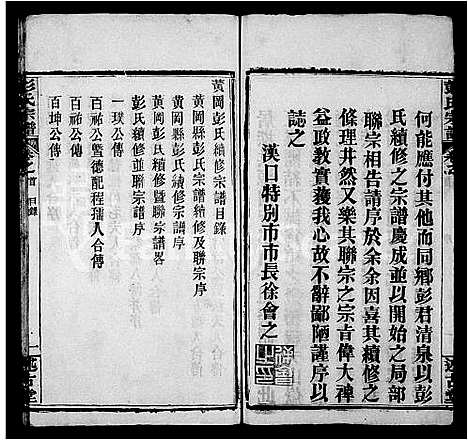 何能應付其他而同鄉彭君清泉以彭
氏續修之宗譜慶成並以開始之局部
聯宗相告請序於余余因喜其續修之
條理井然又樂其聯宗之宗旨偉大裨
益政教實獲我心故不辭鄙陋謹序以
誌之
漢口特別市市長徐會之
黃岡彭氏續修宗譜目錄
黃岡縣彭氏宗譜續修及聯宗序
黃岡縣彭氏續修宗譜序
彭氏續修暨聯宗譜畧
彭氏續修並聯宗譜序
一璞公傳
百祐公暨德配程孺人合傳
百祐公傳
百坤公傳
彭氏宗譜
卷之首
目錄
一
述古堂